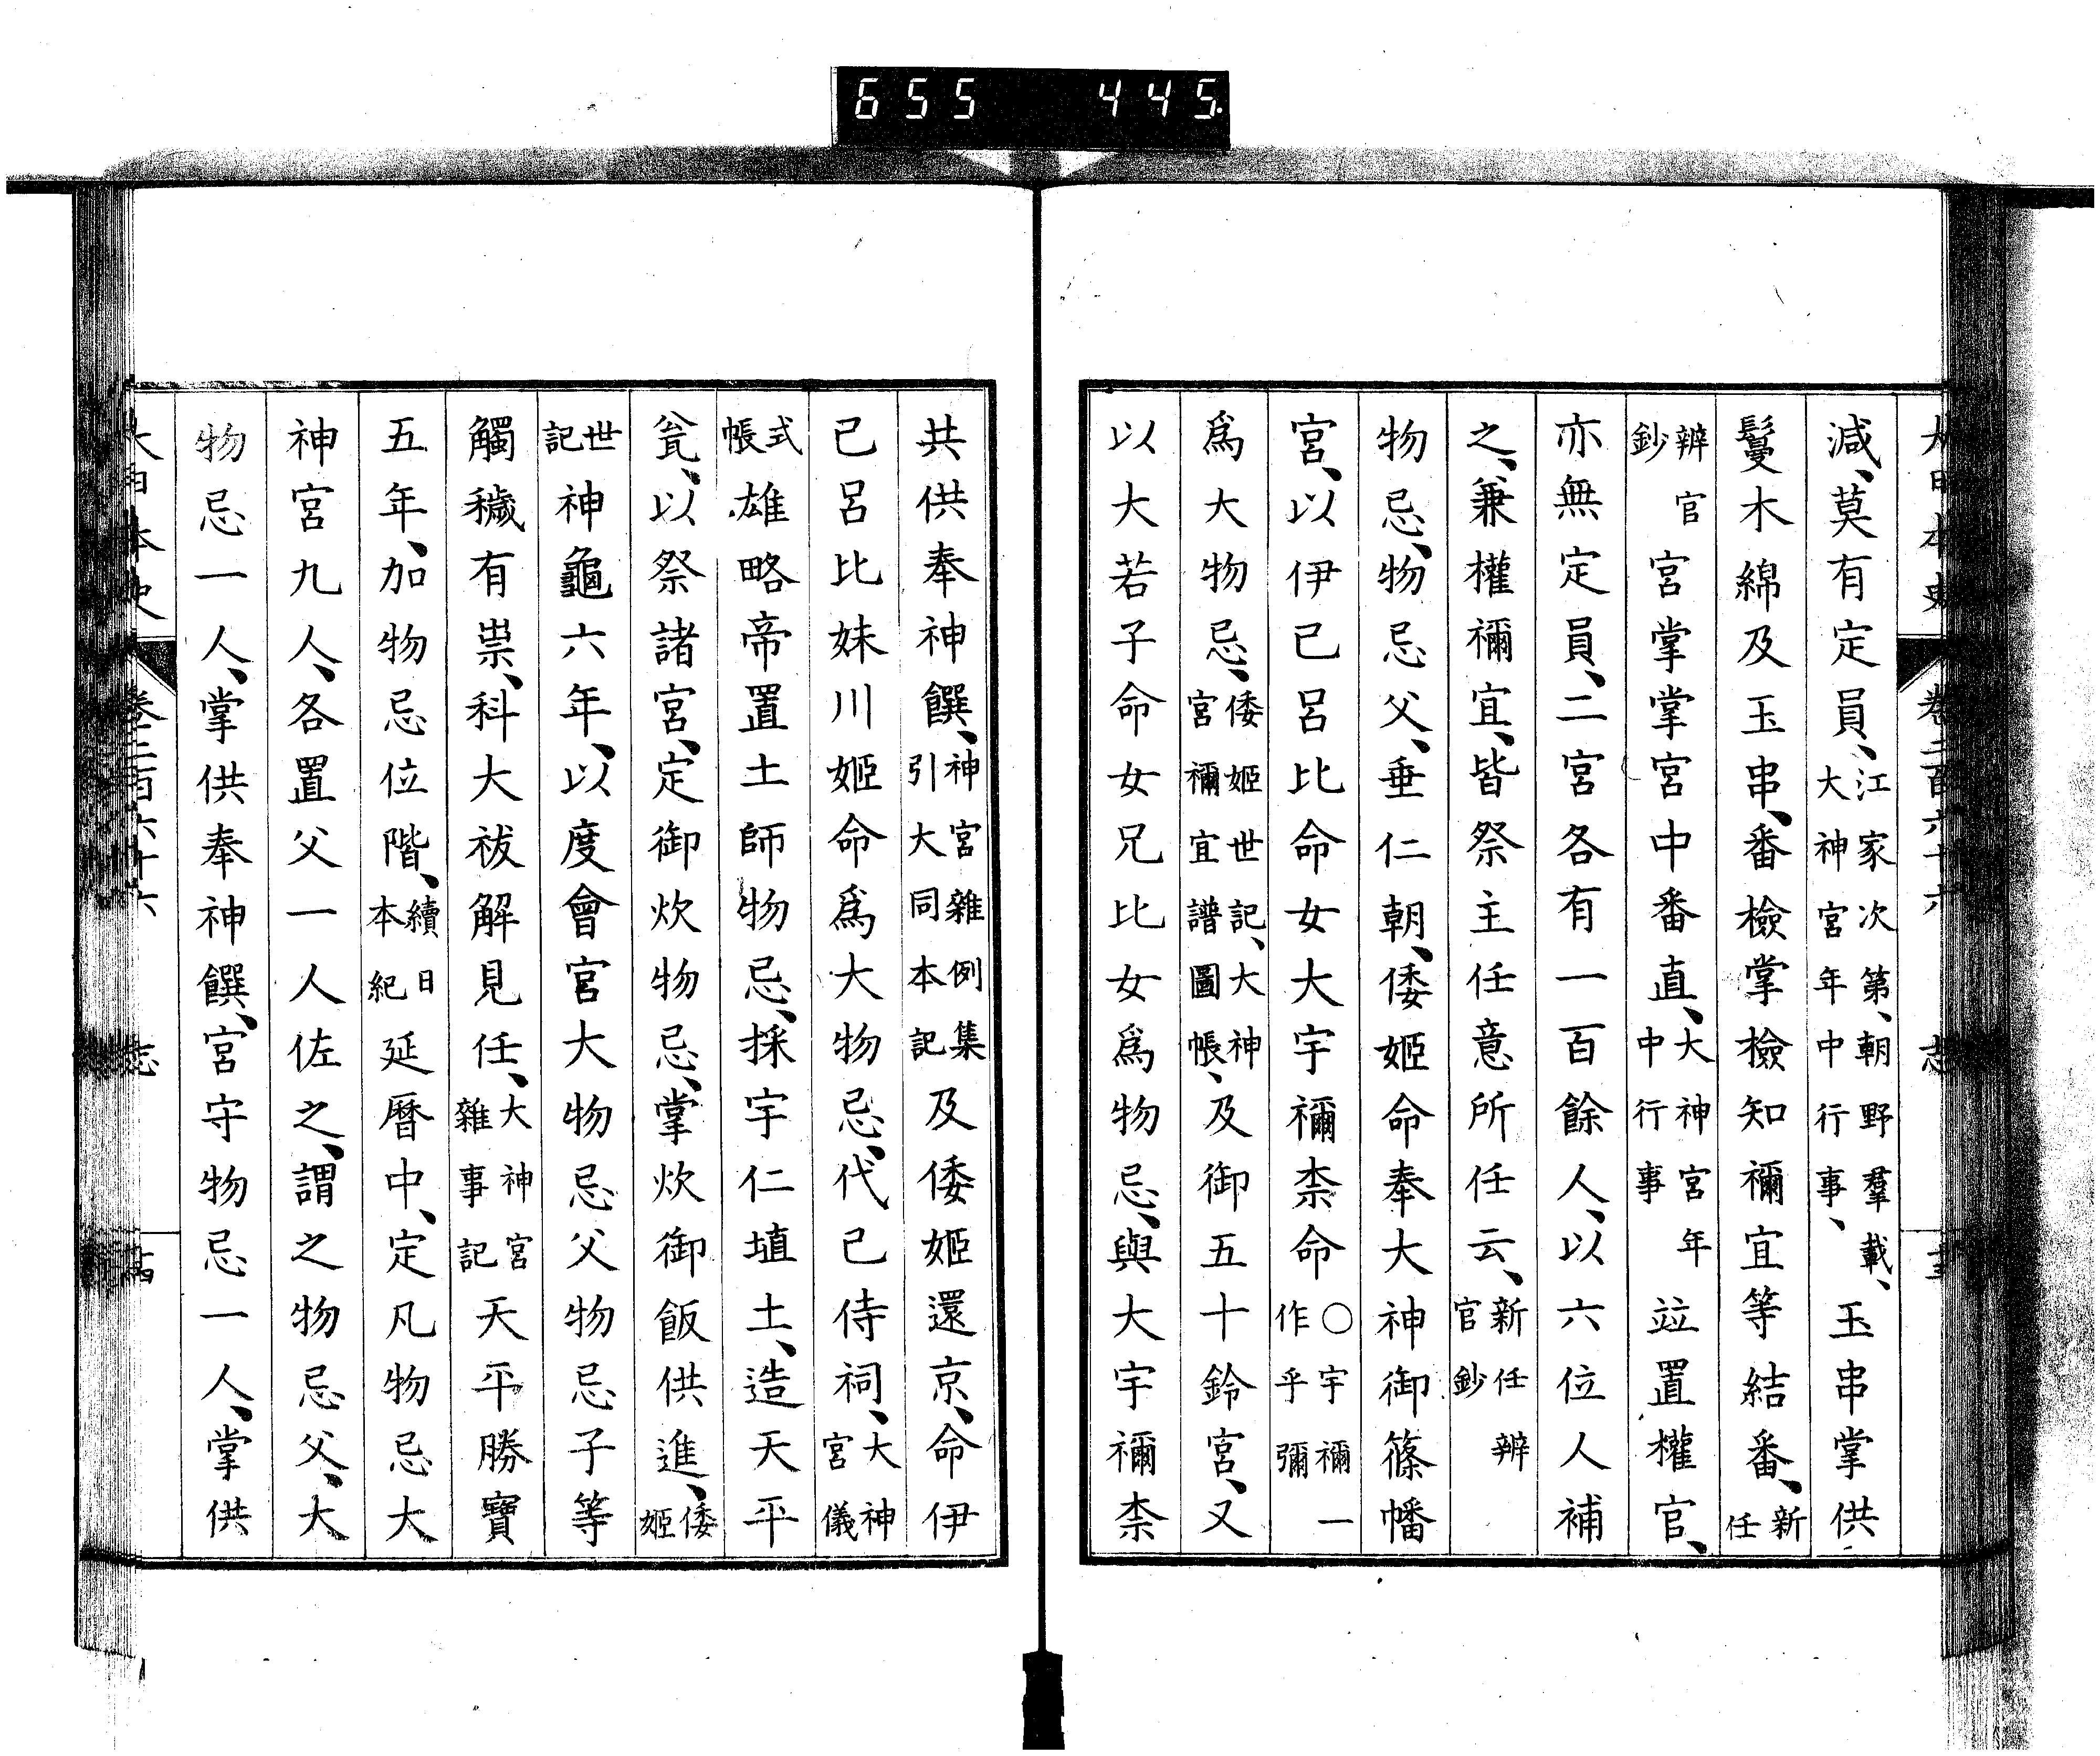 655 445
大日本史 卷二百六十六 志
減、莫有定員、江家次第、朝野羣載、大神宮年中行事、玉串掌供
鬘木綿及玉串、番檢掌檢知禰宜等結番、新任
辨官鈔 宮掌掌宮中番直、大神宮年中行事 竝置權官、
亦無定員、二宮各有一百餘人、以六位人補
之、兼權禰宜、皆祭主任意所任云、新任辨官鈔
物忌、物忌父、垂仁朝、倭姬命奉大神御篠幡
宮、以伊己呂比命女大宇禰柰命〇宇禰一作乎彌
爲大物忌、倭姬世記、大神宮禰宜譜圖帳、及御五十鈴宮、又
以大若子命女兄比女爲物忌、與大宇禰柰
共供奉神饌、神宮雜例集引大同本記 及倭姬還京、命伊
己呂比妹川姬命爲大物忌、代己侍祠、大神宮儀
式帳 雄略帝置土師物忌、採宇仁埴土、造天平
瓮、以祭諸宮、定御炊物忌、掌炊御飯供進、倭姬
世記 神龜六年、以度會宮大物忌父物忌子等
觸穢有祟、科大祓解見任、大神宮雜事記 天平勝寶
五年、加物忌位階、續日本紀 延曆中、定凡物忌大
神宮九人、各置父一人佐之、謂之物忌父、大
物忌一人、掌供奉神饌、宮守物忌一人、掌供
大日本史 卷二百六十六 志